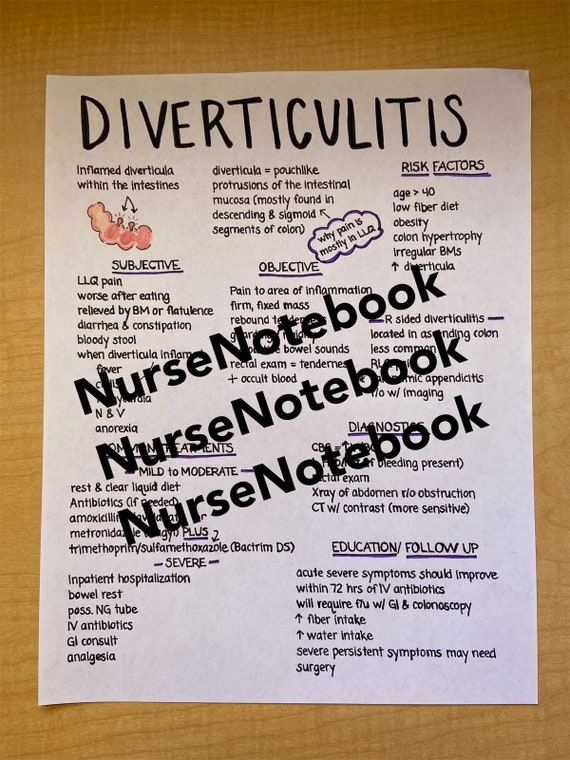 DIVERTICULITIS
Inflamed diverticula
within the intestines
diverticula = pouchlike
protrusions of the intestinal
mucosa (mostly found in
descending & sigmoid
segments of colon)
why pain is
mostly in LLQ
RISK FACTORS
age > 40
low fiber diet
obesity
colon hypertrophy
irregular BMs
↑ diverticula
SUBJECTIVE
LLQ pain
worse after eating
relieved by BM or flatulence
diarrhea & constipation
bloody stool
when diverticula inflamed
fever
N & V
anorexia
OBJECTIVE
Pain to area of inflammation
firm, fixed mass
rebound
bowel sounds
rectal exam = tenderness
+ occult blood
R sided diverticulitis
located in ascending colon
less common
appendicitis
r/o w/ imaging
NurseNotebook
NurseNotebook
NurseNotebook
TREATMENTS
MILD to MODERATE
rest & clear liquid diet
Antibiotics (if needed)
PLUS
trimethoprim/sulfamethoxazole (Bactrim DS)
SEVERE
Inpatient hospitalization
bowel rest
poss. NG tube
IV antibiotics
GI consult
analgesia
DIAGNOSTICS
CBC
if bleeding present)
exam
Xray of abdomen r/o obstruction
CT w/ contrast (more sensitive)
EDUCATION/ FOLLOW UP
acute severe symptoms should improve
within 72 hrs of IV antibiotics
will require f/u w/ GI & colonoscopy
↑ fiber intake
↑ water intake
severe persistent symptoms may need
surgery